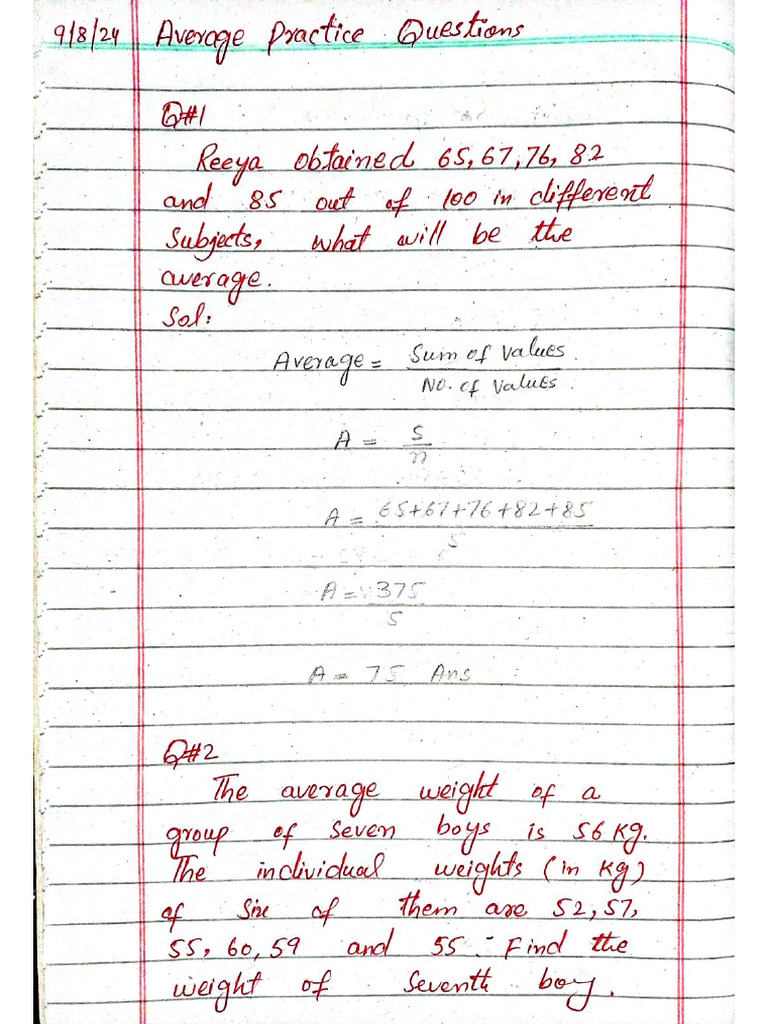 9/8/24 Average Practice Questions
Q#1
Reeya obtained 65, 67, 76, 82
and 85 out of 100 in different
Subjects, what will be the
average.
Sol:
Average = Sum of values.
No. of values.
A = S
n
A = 65+67+76+82+85
5
A = 375
5
A = 75 Ans
Q#2
The average weight of a
group of seven boys is 56 kg.
The individual weights (in kg)
of Six of them are 52, 57,
55, 60, 59 and 55. Find the
weight of Seventh boy.